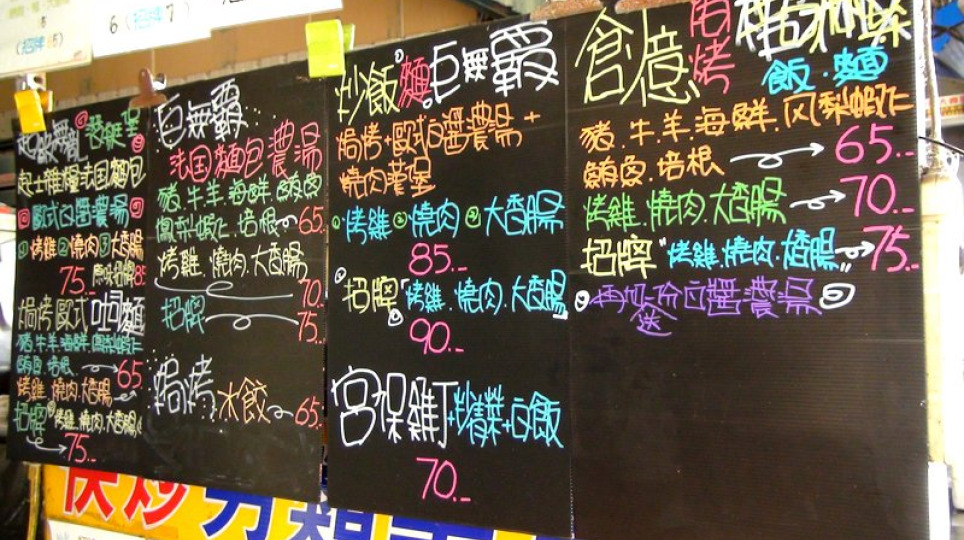 6 (招牌7)
巨無霸
起士雞塊法国麵包
歐式白醬濃湯
①烤雞②燒肉③大香腸
75. 原味招牌85
焗烤歐式吐司麵
豬.牛羊.海鮮.鳳梨蝦仁
鮪魚.培根. 65
烤雞.燒肉.大香腸
招牌"烤雞.燒肉.大香腸"
75.-
巨無霸
法国麵包濃湯
豬.牛.羊.海鮮.鮪魚
鳳梨蝦仁.培根 65.
烤雞.燒肉.大香腸
70.-
招牌 75.
焗烤水餃 65.
炒飯麵巨無霸
焗烤+歐式白醬濃湯+
燒肉漢堡
①烤雞②燒肉③大香腸
85.-
招牌"烤雞.燒肉.大香腸
90.-
宮保雞丁+炒青菜+白飯
70.-
創意焗烤
飯.麵
豬.牛羊海鮮.风梨蝦仁
鮪魚.培根 65.-
烤雞.燒肉.大香腸 70.-
招牌"烤雞.燒肉.香腸" 75.-
再加送 白醬濃湯
快炒